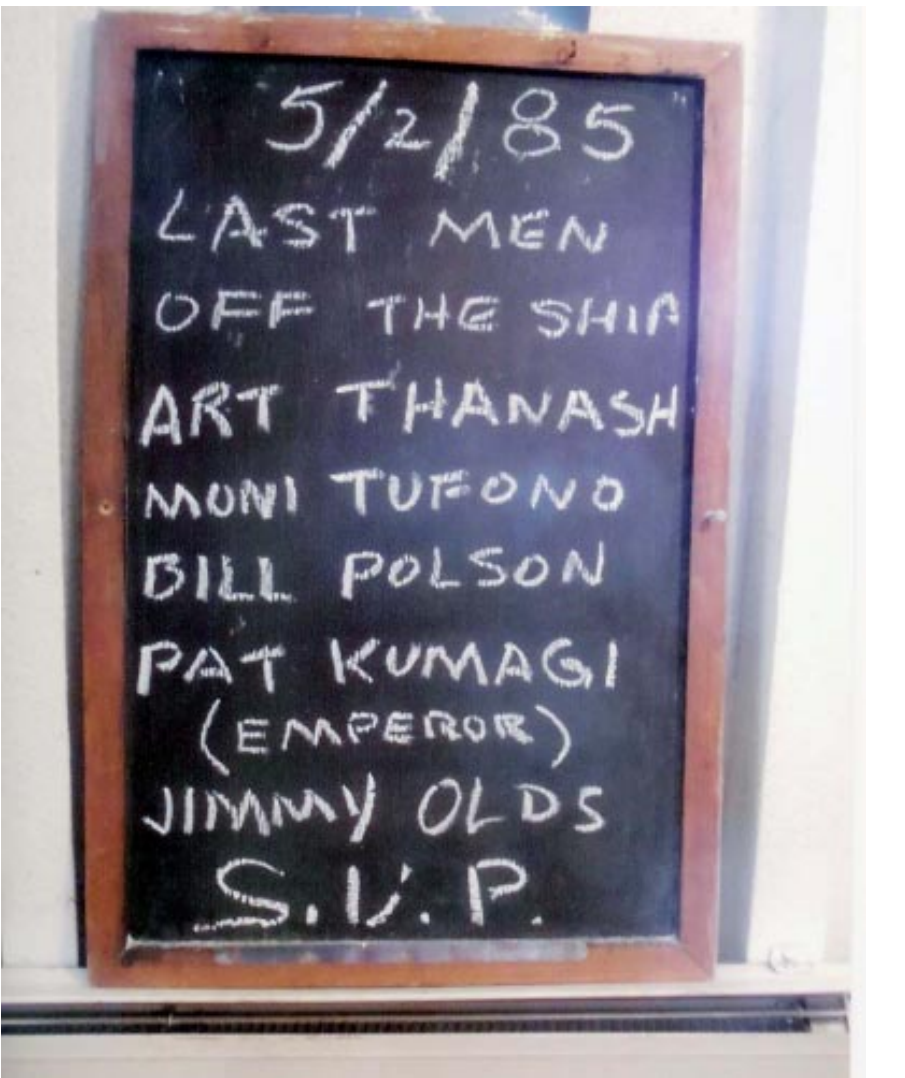 5/2/85
LAST MEN
OFF THE SHIP
ART THANASH
MUNI TUFONO
BILL POLSON
PAT KUMAGI
(EMPEROR)
JIMMY OLDS
S.V.P.